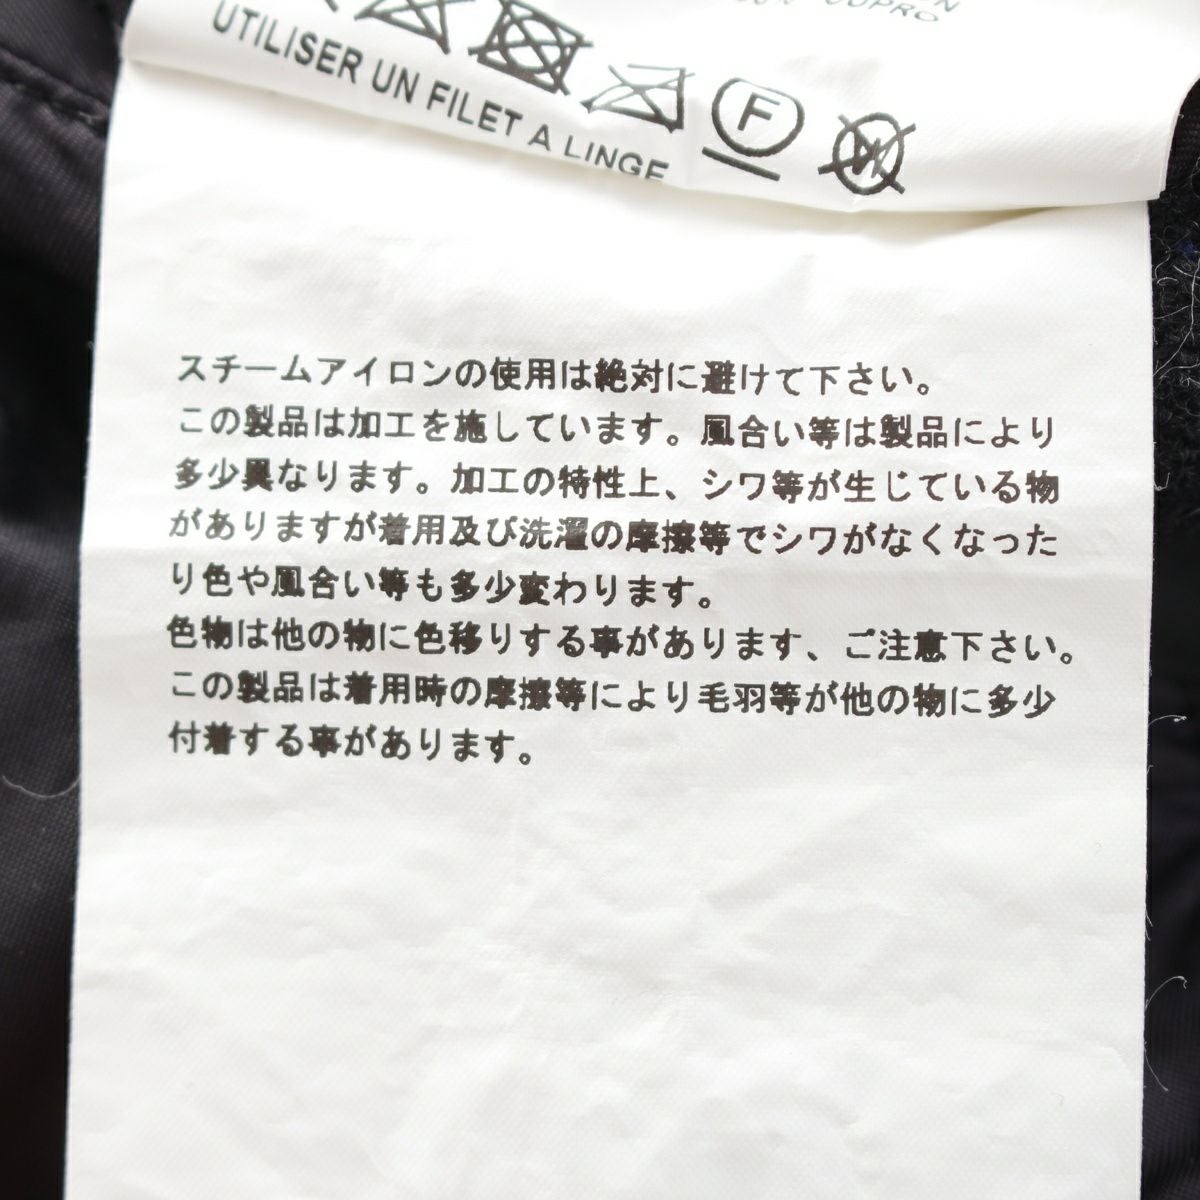 CUPRO
F
W
UTILISER UN FILET A LINGE
スチームアイロンの使用は絶対に避けて下さい。
この製品は加工を施しています。風合い等は製品により
多少異なります。加工の特性上、シワ等が生じている物
がありますが着用及び洗濯の摩擦等でシワがなくなった
り色や風合い等も多少変わります。
色物は他の物に色移りする事があります、ご注意下さい。
この製品は着用時の摩擦等により毛羽等が他の物に多少
付着する事があります。